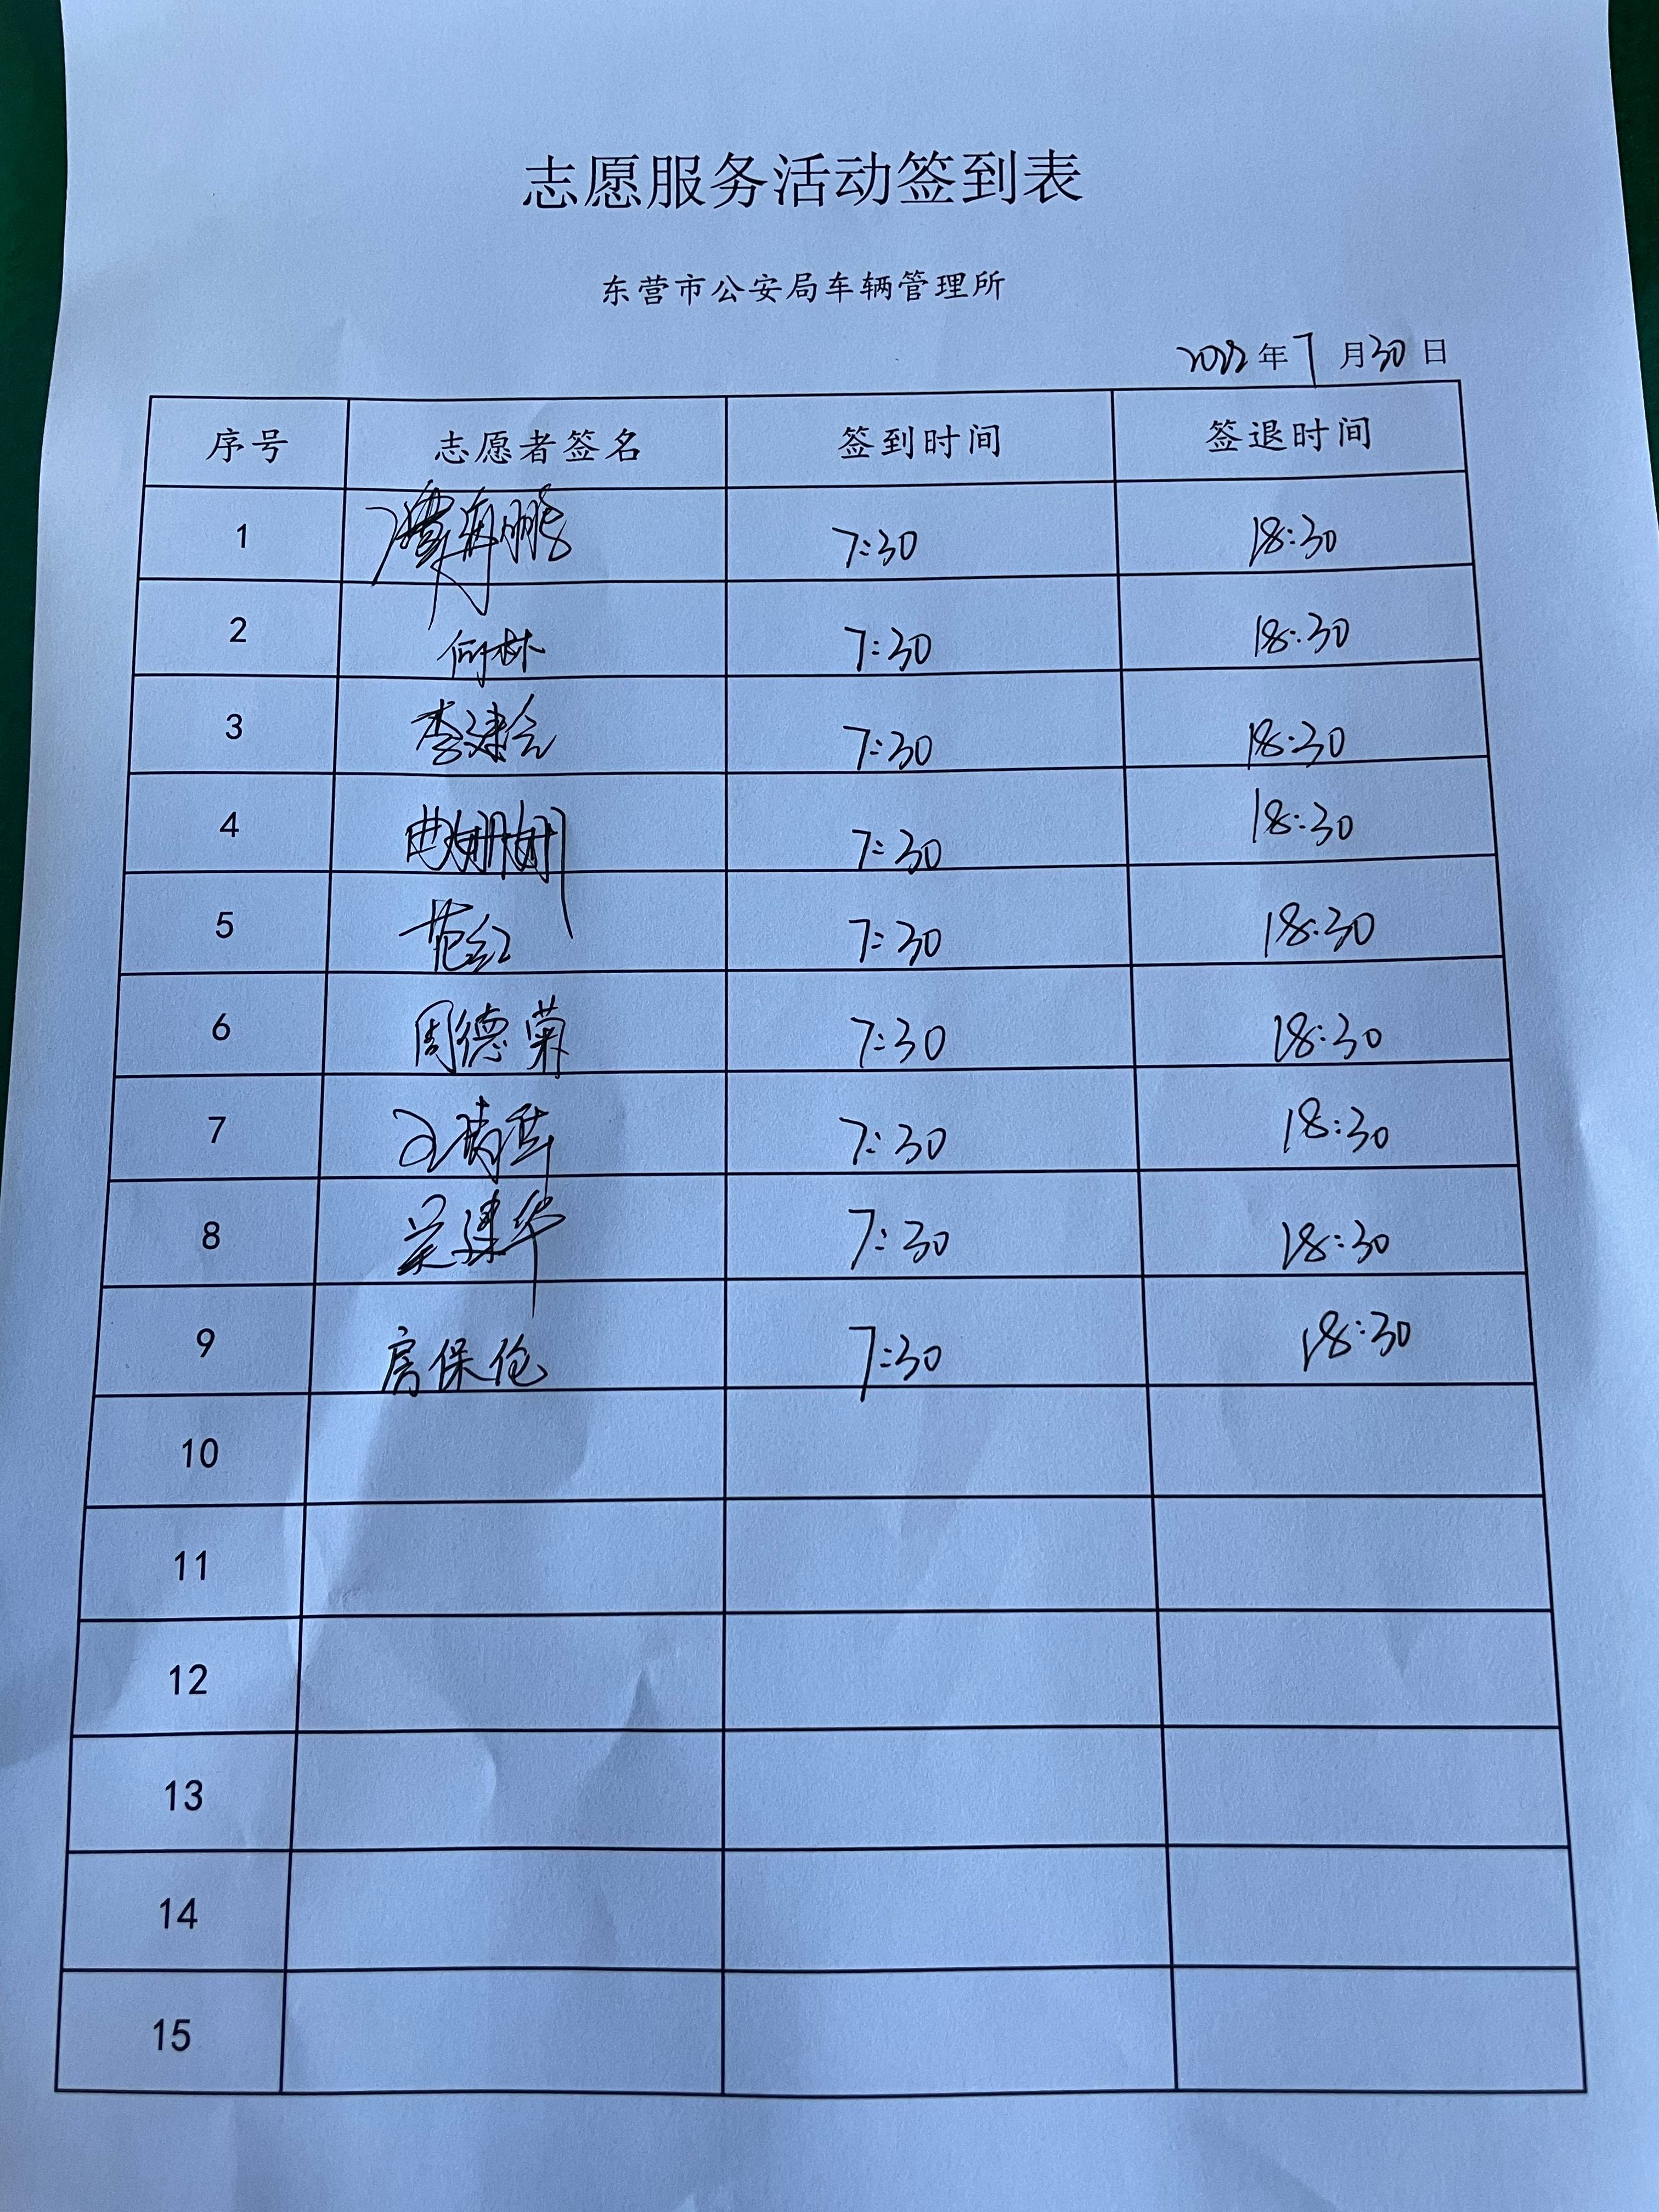 志愿服务活动签到表
东营市公安局车辆管理所
2022年7月30日
序号 志愿者签名 签到时间 签退时间
1 7:30 18:30
2 何林 7:30 18:30
3 李建会 7:30 18:30
4 曲姗姗 7:30 18:30
5 范红 7:30 18:30
6 周德菊 7:30 18:30
7 7:30 18:30
8 吴建华 7:30 18:30
9 房保伦 7:30 18:30
10
11
12
13
14
15